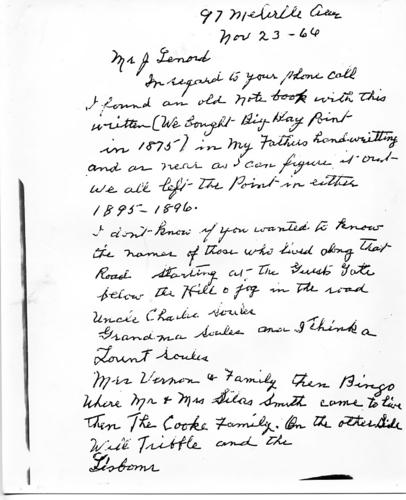 97 Melville Ave
Nov 23-66
Mr J Lenord
In regard to your phone call
I found an old note book with this
written (We bought Big Bay Point
in 1875) in my Fathers handwritting
and as near as I can figure it out
we all left the Point in either
1895-1896.
I don't know if you wanted to know
the names of those who lived along that
Road starting at the Guest Gate
below the Hill & jog in the road
Uncle Charlie Soules
Grandma Soules and I think a
Lount Soules
Mrs Vernon & Family then Bingo
where Mr & Mrs Silas Smith came to live
then The Cooke Family. On the other side
Will Tribble and the